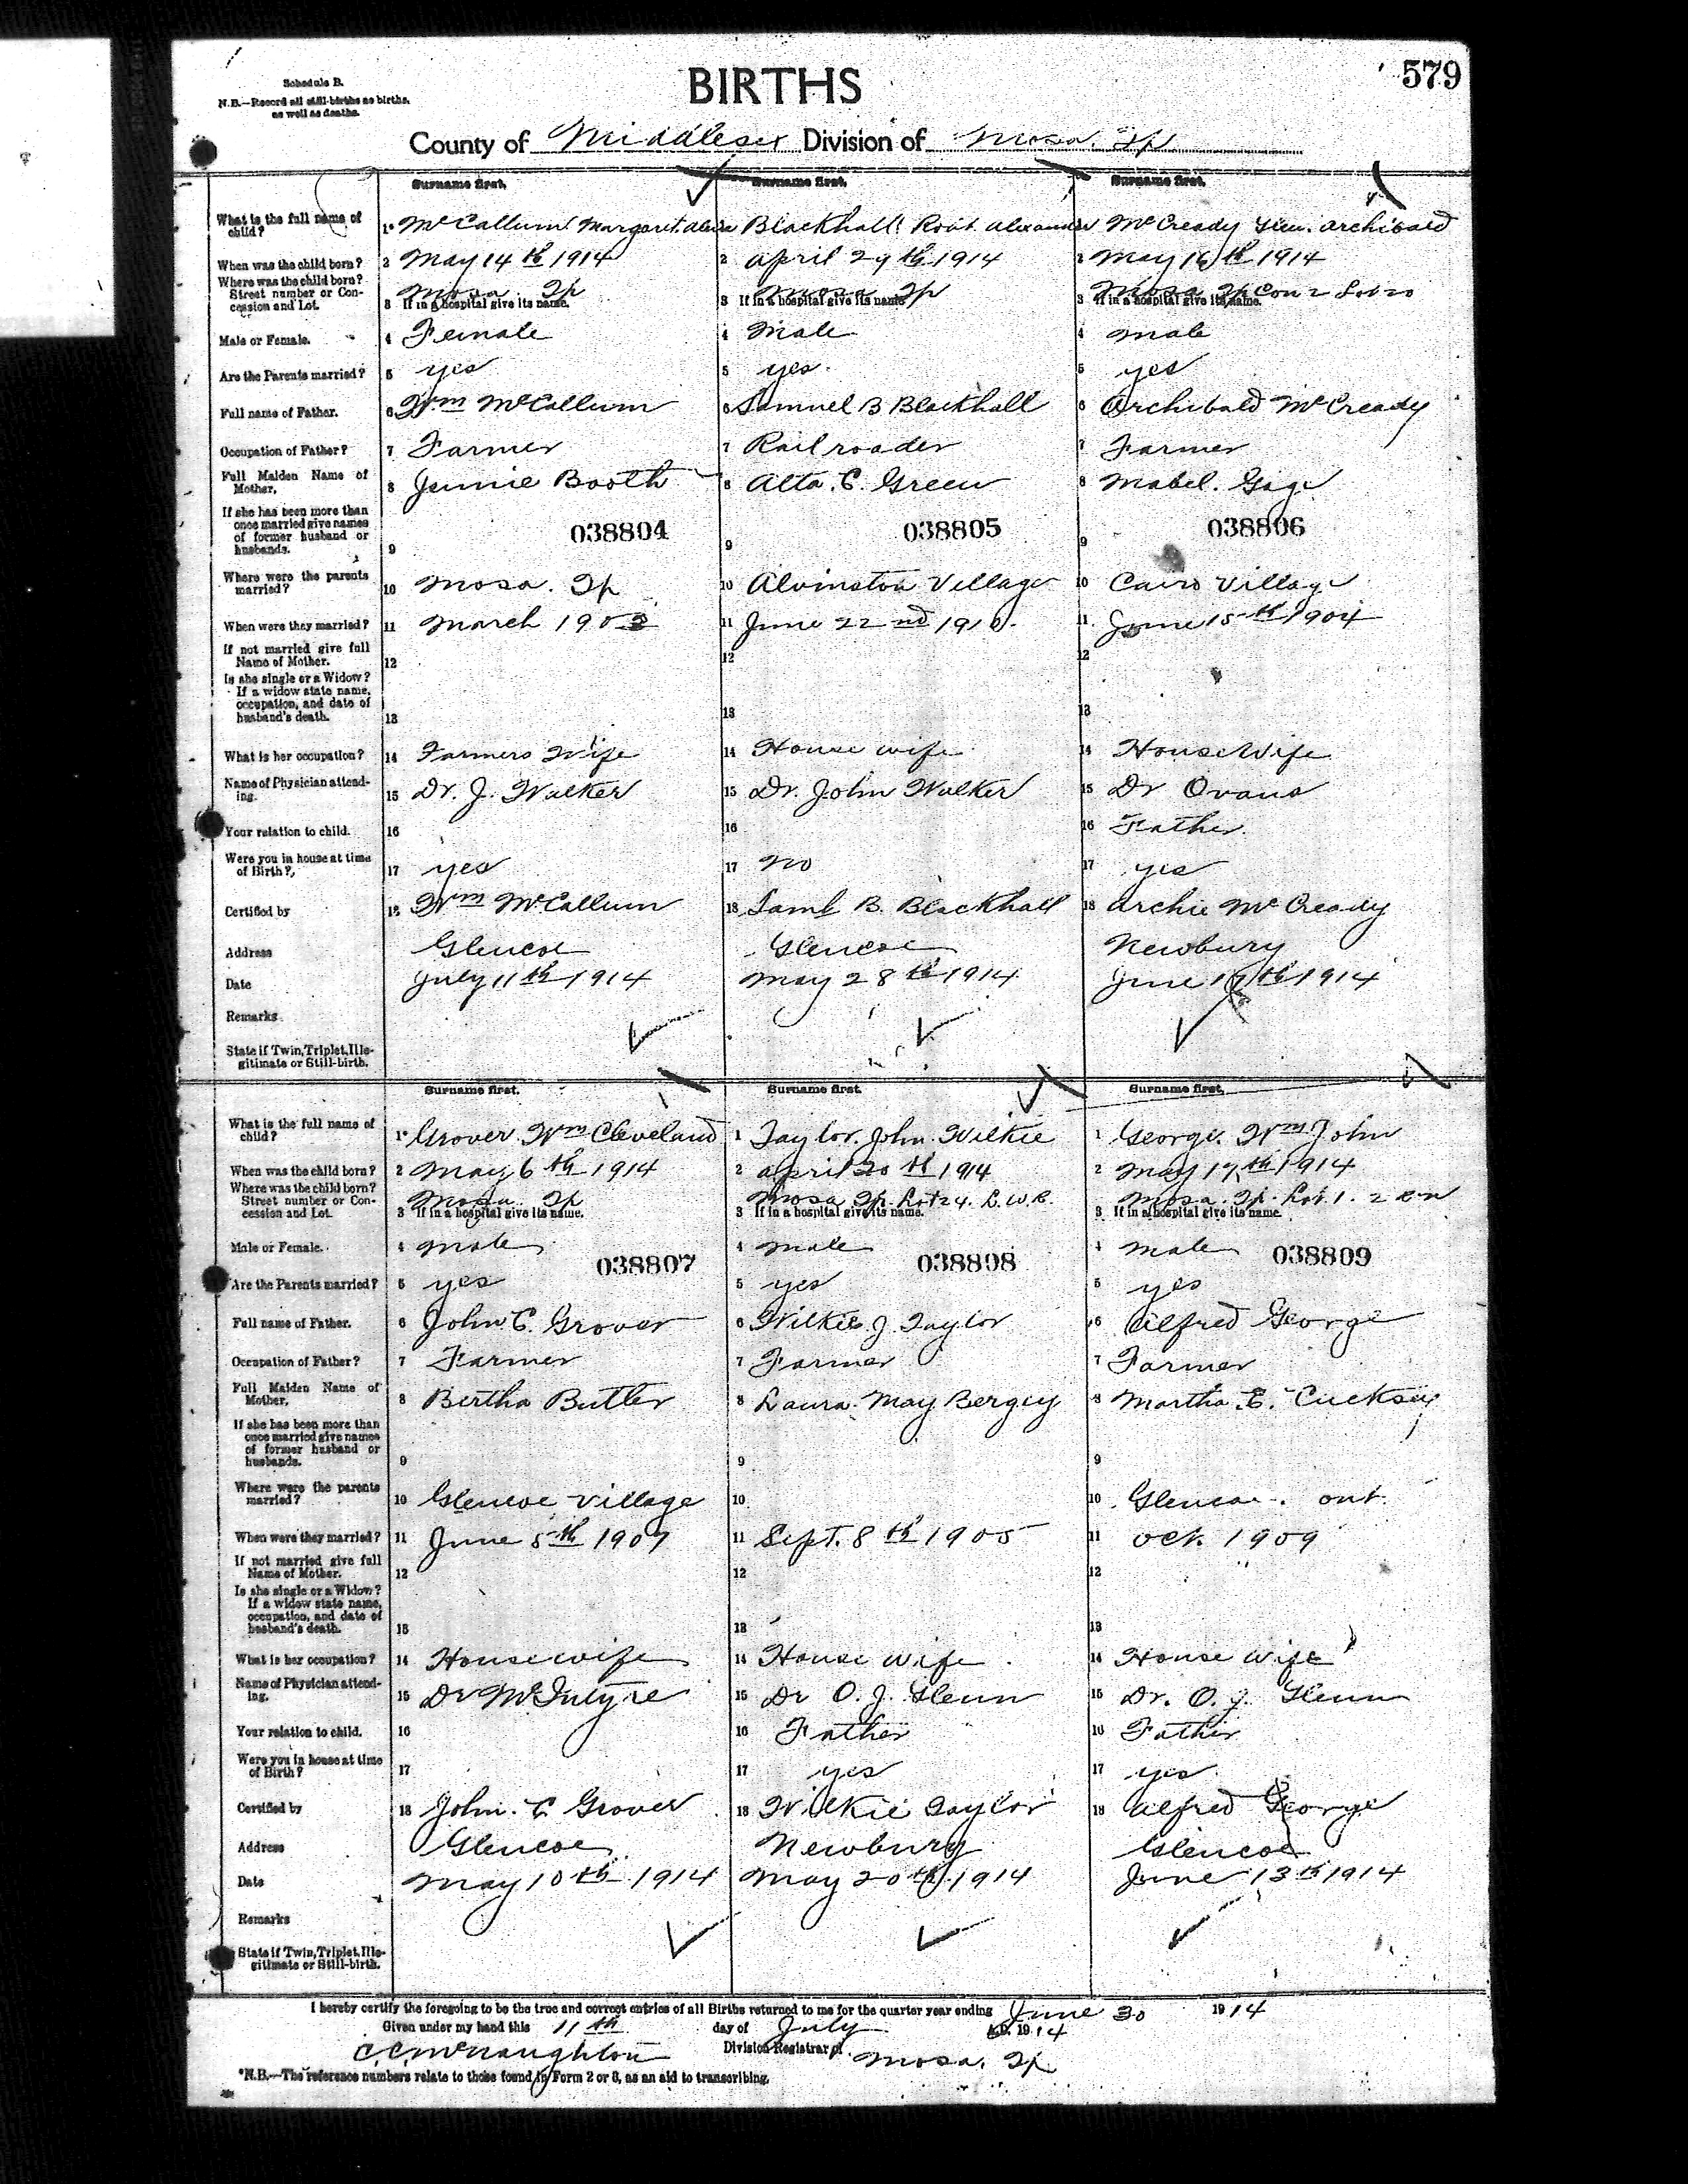 579
Schedule B.
BIRTHS
N.B.—Record all still-births as births,
as well as deaths.
County of Middlesex Division of Mosa. Tp
Surname first. Surname first. Surname first.
What is the full name of child? 1* McCallum Margaret 1 Blackhall Robt. Alexander 1 McCready Glen. Archibald
When was the child born? 2 May 14th 1914 2 April 29th 1914 2 May 16th 1914
Where was the child born? Street number or Concession and Lot. 3 If in a hospital give its name. Mosa. Tp 3 If in a hospital give its name. Mosa Tp 3 If in a hospital give its name. Mosa Tp Con 2 Lot 20
Male or Female. 4 Female 4 Male 4 male
Are the Parents married? 5 yes 5 yes. 5 yes
Full name of Father. 6 Wm McCallum 6 Samuel B Blackhall 6 Archibald McCready
Occupation of Father? 7 Farmer 7 Railroader 7 Farmer
Full Maiden Name of Mother. 8 Jennie Booth 8 Alta. E. Green 8 Mabel. Gage
If she has been more than once married give names of former husband or husbands. 9 038804 9 038805 9 038806
Where were the parents married? 10 Mosa. Tp 10 Alvinston Village 10 Cairo Village
When were they married? 11 March 1903 11 June 22nd 1910. 11 June 15th 1904
If not married give full Name of Mother. 12 12 12
Is she single or a Widow? If a widow state name, occupation, and date of husband's death. 13 13 13
What is her occupation? 14 Farmers Wife 14 House wife 14 HouseWife
Name of Physician attending. 15 Dr. J. Walker 15 Dr. John Walker 15 Dr Ovans
Your relation to child. 16 16 16 Father.
Were you in house at time of Birth? 17 yes 17 no 17 yes
Certified by 18 Wm McCallum 18 Saml B. Blackhall 18 Archie McCready
Address Glencoe Glencoe Newbury
Date July 11th 1914 May 28th 1914 June 17th 1914
Remarks
State if Twin, Triplet, Illegitimate or Still-birth.
Surname first. Surname first. Surname first.
What is the full name of child? 1* Grover Wm Cleveland 1 Taylor. John. Wilkie 1 George. Wm John
When was the child born? 2 May 6th 1914 2 April 20th 1914 2 May 17th 1914
Where was the child born? Street number or Concession and Lot. 3 If in a hospital give its name. Mosa Tp 3 If in a hospital give its name. Mosa Tp. Lot 24. L.W.R. 3 If in a hospital give its name. Mosa. Tp. Lot. 1. 2 R N
Male or Female. 4 male 4 male 4 male
038807 038808 038809
Are the Parents married? 5 yes 5 yes 5 yes
Full name of Father. 6 John E. Grover 6 Wilkie. J. Taylor 6 Alfred George
Occupation of Father? 7 Farmer 7 Farmer 7 Farmer
Full Maiden Name of Mother. 8 Bertha Butler 8 Laura May Bergey 8 Martha. E. Cucksey
If she has been more than once married give names of former husband or husbands. 9 9 9
Where were the parents married? 10 Glencoe village 10 10 Glencoe. ont.
When were they married? 11 June 5th 1907 11 Sept. 8th 1905 11 oct. 1909
If not married give full Name of Mother. 12 12 12
Is she single or a Widow? If a widow state name, occupation, and date of husband's death. 13 13 13
What is her occupation? 14 Housewife 14 House wife. 14 House wife
Name of Physician attending. 15 Dr McIntyre 15 Dr O. J. Glenn 15 Dr. O. J. Glenn
Your relation to child. 16 16 Father 16 Father
Were you in house at time of Birth? 17 17 yes 17 yes
Certified by 18 John. E Grover 18 Wilkie Taylor 18 Alfred George
Address Glencoe Newbury Glencoe
Date May 10th 1914 May 20th 1914 June 13th 1914
Remarks
State if Twin, Triplet, Illegitimate or Still-birth.
I hereby certify the foregoing to be the true and correct entries of all Births returned to me for the quarter year ending June 30 1914
Given under my hand this 11th day of July A.D. 1914
C C McNaughton Division Registrar of Mosa. Tp
*N.B.—The reference numbers relate to those found in Form 2 or 3, as an aid to transcribing.